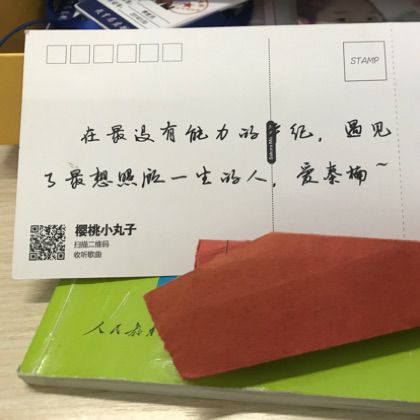 STAMP
在最没有能力的年纪，遇见
了最想照顾一生的人，爱秦楠~
Sakura Momoko
樱桃小丸子
扫描二维码
收听歌曲
人民教